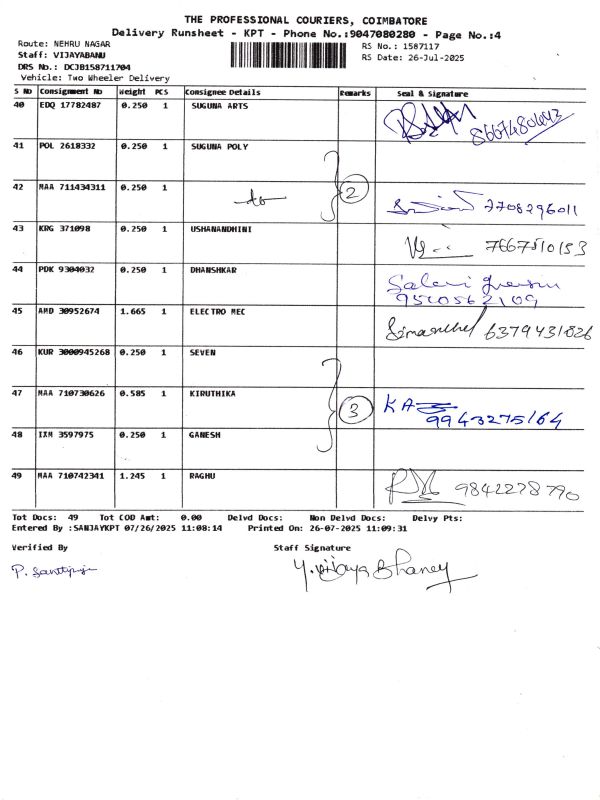 THE PROFESSIONAL COURIERS, COIMBATORE
Delivery Runsheet - KPT - Phone No.:9047080280 - Page No.:4
Route: NEHRU NAGAR RS No.: 1587117
Staff: VIJAYABANU RS Date: 26-Jul-2025
DRS No.: DCJB158711704
Vehicle: Two Wheeler Delivery
S NO Consignment No Weight PCS Consignee Details Remarks Seal & Signature
40 EDQ 17782487 0.250 1 SUGUNA ARTS
41 POL 2618332 0.250 1 SUGUNA POLY
42 MAA 711434311 0.250 1 2 7708296011
43 KRG 371098 0.250 1 USHANANDHINI 7667510153
44 PDK 9304032 0.250 1 DHANSHKAR
9500562109
45 AMD 30952674 1.665 1 ELECTRO MEC 6379431826
46 KUR 3000945268 0.250 1 SEVEN
47 MAA 710730626 0.585 1 KIRUTHIKA 3 KA
9943275164
48 IXM 3597975 0.250 1 GANESH
49 MAA 710742341 1.245 1 RAGHU 9842278790
Tot Docs: 49 Tot COD Amt: 0.00 Delvd Docs: Non Delvd Docs: Delvy Pts:
Entered By :SANJAYKPT 07/26/2025 11:08:14 Printed On: 26-07-2025 11:09:31
Verified By Staff Signature